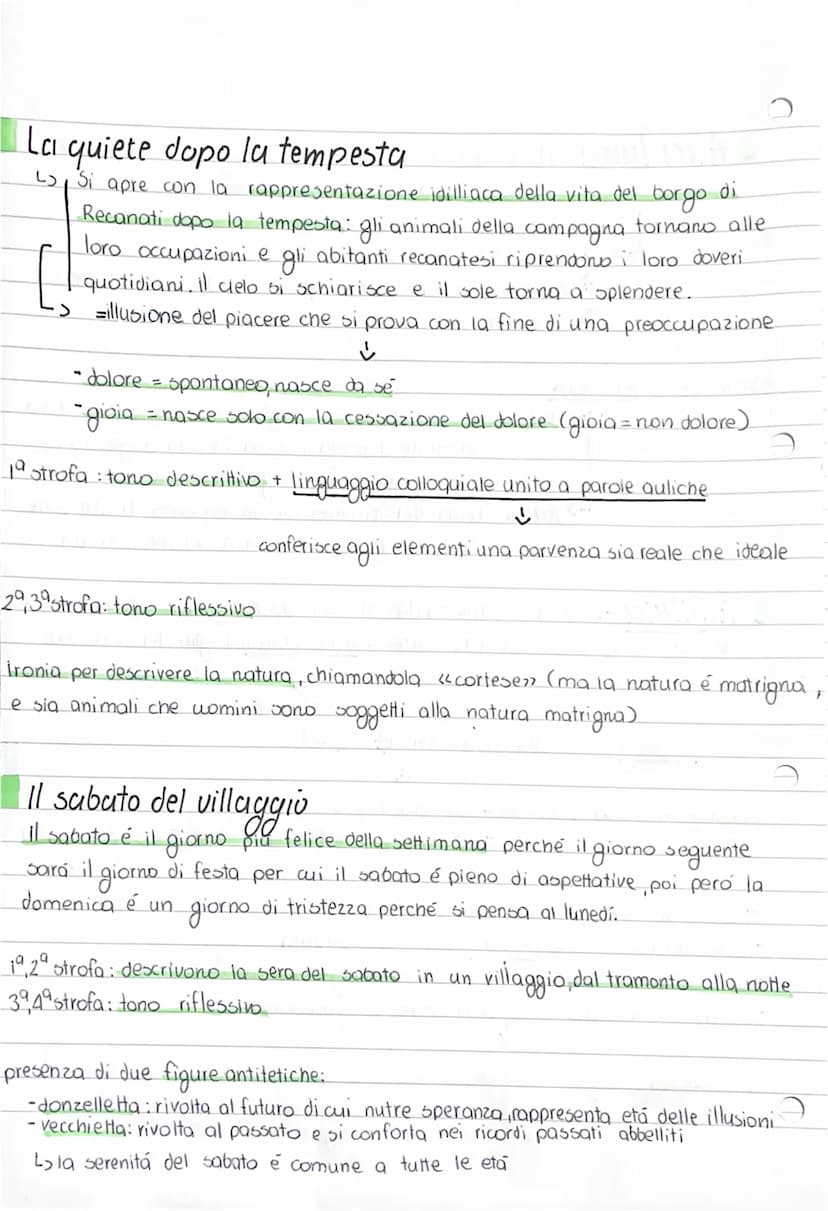 La quiete dopo la tempesta
↳ Si apre con la rappresentazione idilliaca della vita del borgo di
Recanati dopo la tempesta: gli animali della campagna tornano alle
loro occupazioni e gli abitanti recanatesi riprendono i loro doveri
quotidiani. il cielo si schiarisce e il sole torna a splendere.
=illusione del piacere che si prova con la fine di una preoccupazione
↓
- dolore = spontaneo, nasce da sé
- gioia = nasce solo con la cessazione del dolore (gioia = non dolore)
1ª strofa : tono descrittivo + linguaggio colloquiale unito a parole auliche
↓
conferisce agli elementi una parvenza sia reale che ideale
2ª,3ª strofa: tono riflessivo
ironia per descrivere la natura, chiamandola «cortese» (ma la natura é matrigna,
e sia animali che uomini sono soggetti alla natura matrigna)
Il sabato del villaggio
Il sabato é il giorno piú felice della settimana perché il giorno seguente
sará il giorno di festa per cui il sabato é pieno di aspettative, poi peró la
domenica é un giorno di tristezza perché si pensa al lunedí.
1ª,2ª strofa: descrivono la sera del sabato in un villaggio, dal tramonto alla notte
3ª,4ª strofa: tono riflessivo
presenza di due figure antitetiche:
-donzelletta: rivolta al futuro di cui nutre speranza, rappresenta etá delle illusioni
- vecchietta: rivolta al passato e si conforta nei ricordi passati abbelliti
↳ la serenitá del sabato é comune a tutte le etá